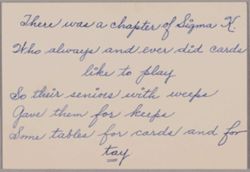 There was a chapter of Sigma K.
Who always and ever did cards
like to play
So their seniors with weeps
Gave them for keeps
Some tables for cards and for
tay